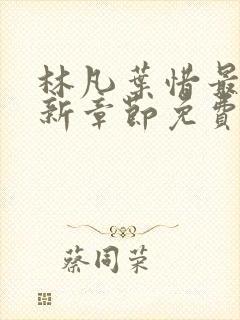 林凡葉惜最
新章節免費
蔡同荣